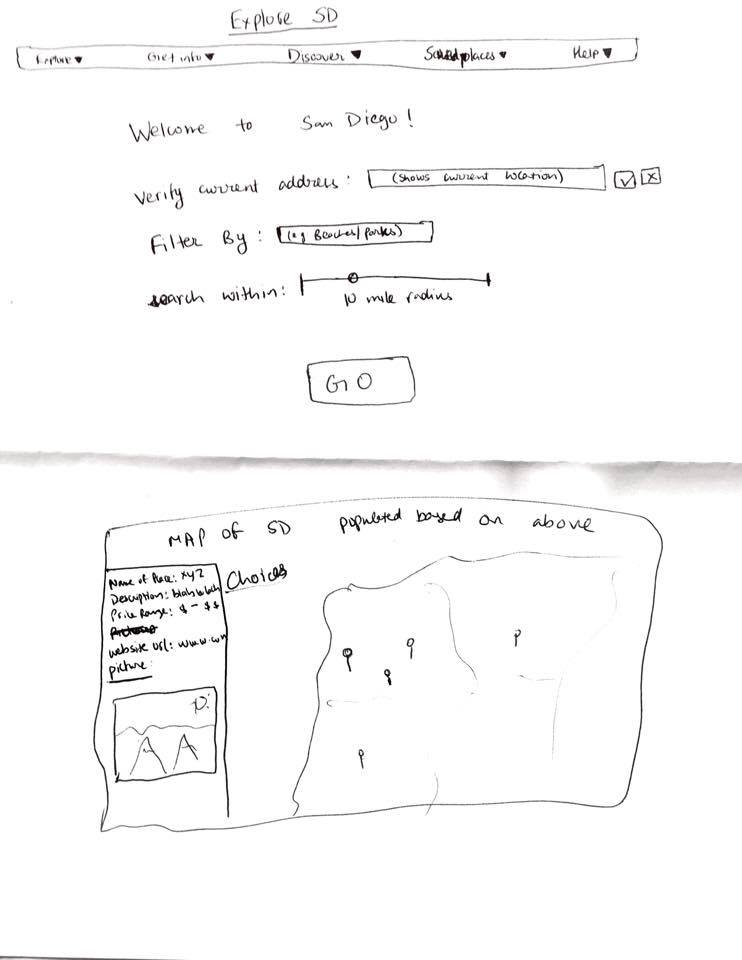 Explore SD
Explore Get info Discover Saved places Help
Welcome to San Diego!
Verify current address: (shows current location)
Filter By: (eg Beaches/Parks)
search within:
10 mile radius
GO
MAP OF SD populated based on above
Choices
Name of Place: XYZ
Description: blah blah
Price Range: $-$$
website url: www.com
picture: